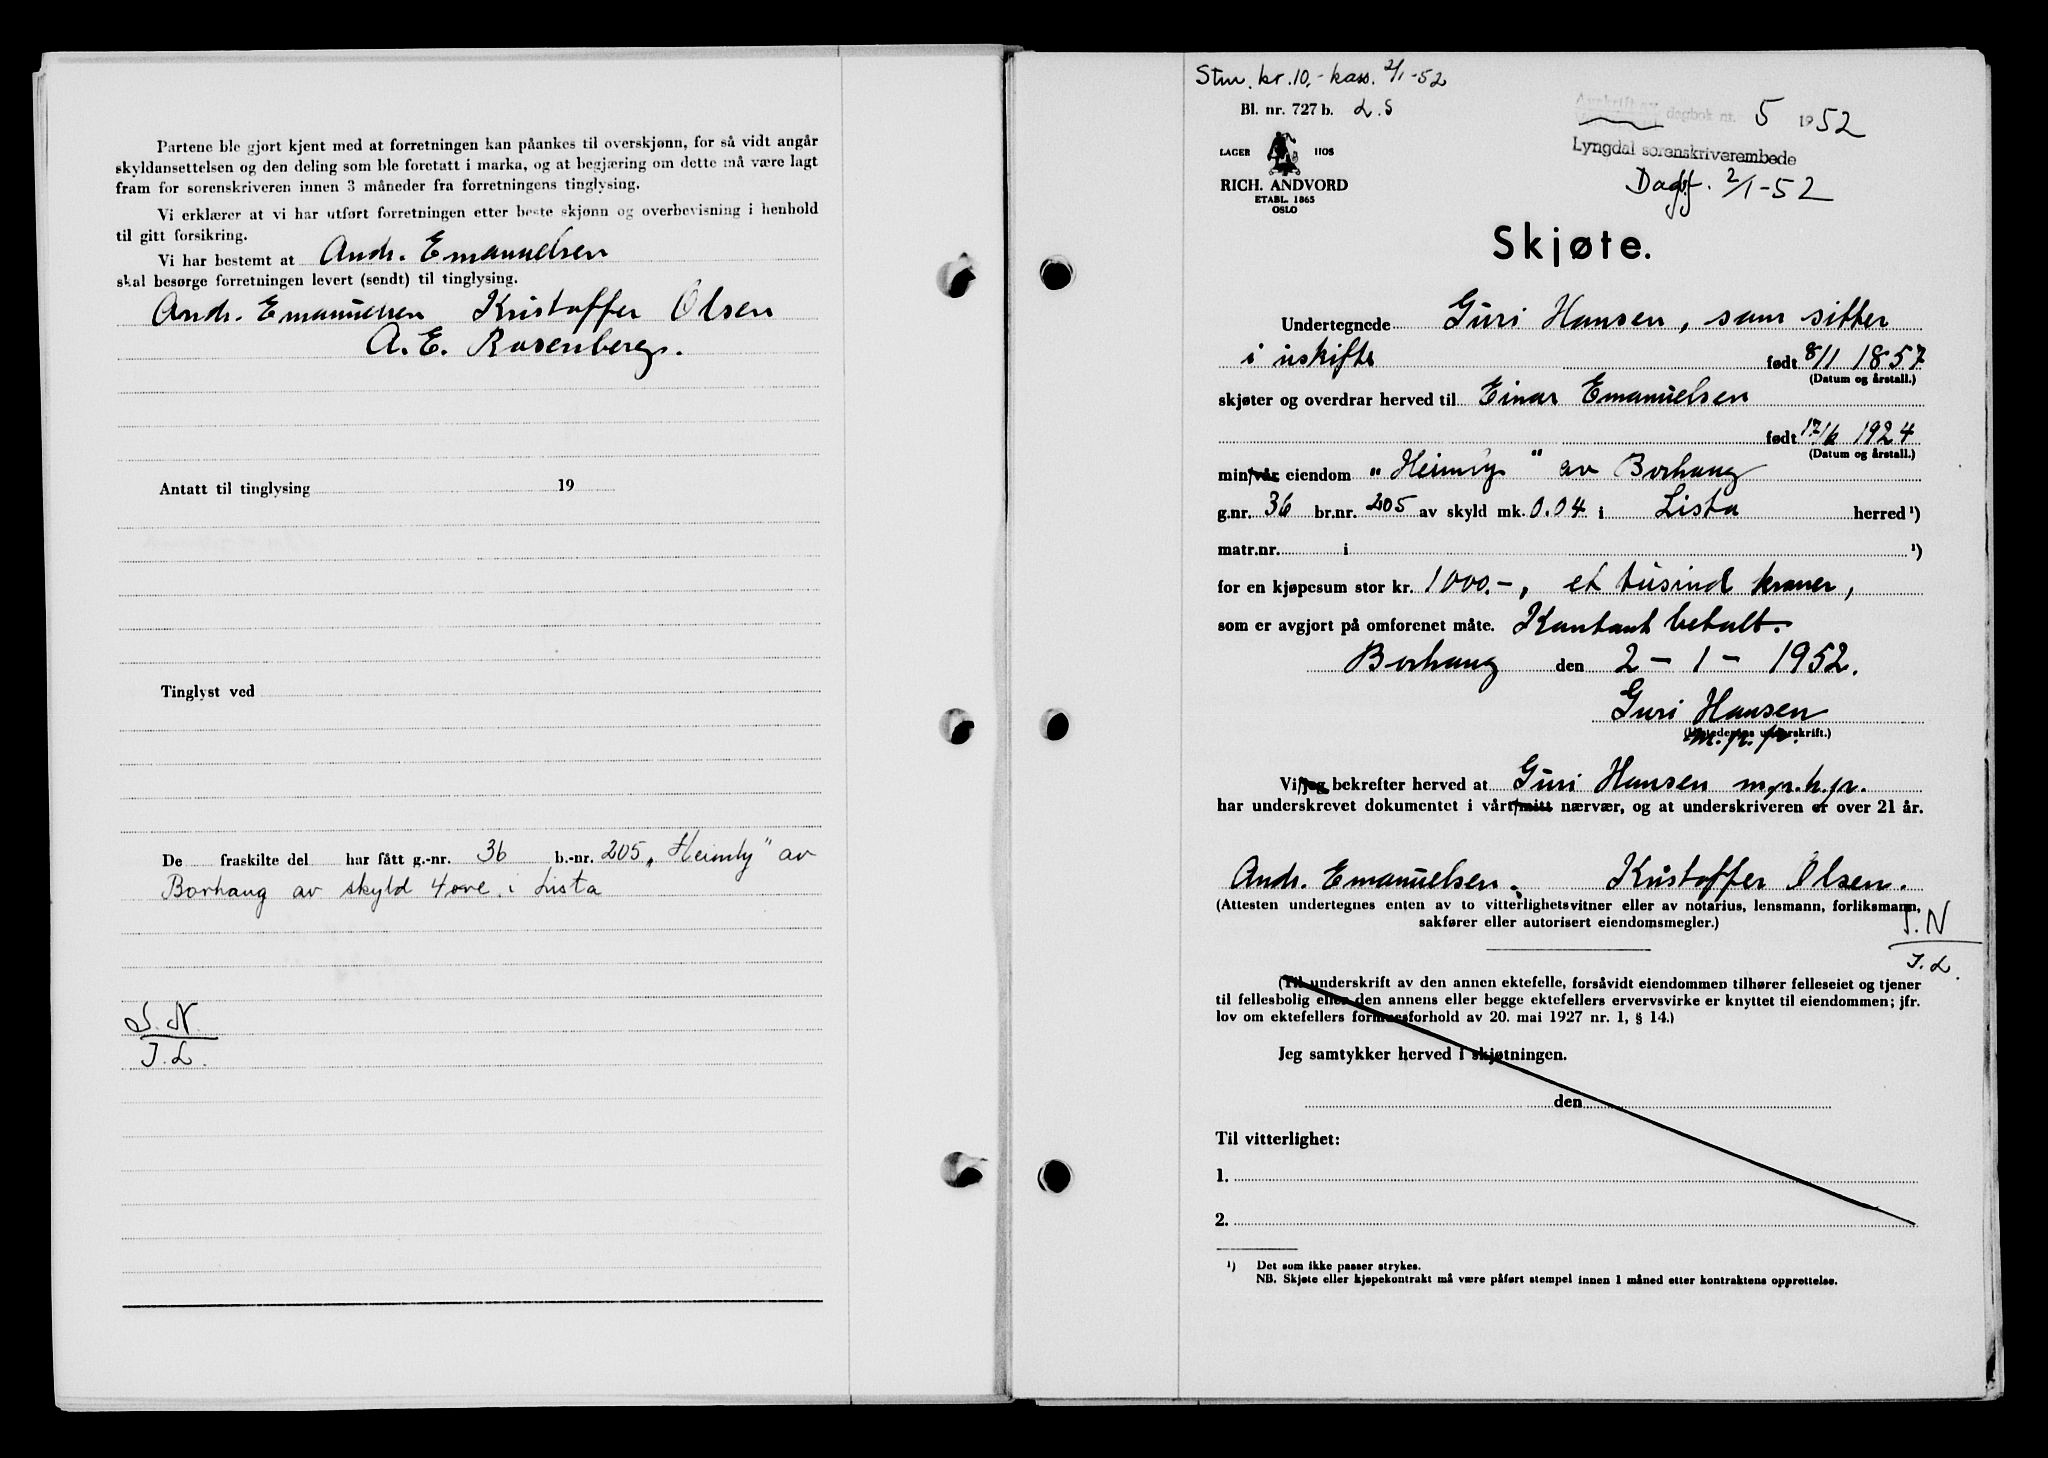 Partene ble gjort kjent med at forretningen kan påankes til overskjønn, for så vidt angår
skyldansettelsen og den deling som ble foretatt i marka, og at begjæring om dette må være lagt
fram for sorenskriveren innen 3 måneder fra forretningens tinglysing.
Vi erklærer at vi har utført forretningen etter beste skjønn og overbevisning i henhold
til gitt forsikring.
Vi har bestemt at Andr. Emanuelsen
skal besørge forretningen levert (sendt) til tinglysing.
Andr. Emanuelsen Kristoffer Olsen
A. E. Rosenberg.
Antatt til tinglysing 19
Tinglyst ved
De fraskilte del har fått g.-nr. 36 b.-nr. 205 „Heimly" av
Borhaug av skyld 4 øre. i Lista
S. N.
J. L.
Stm. kr. 10,- kass. 2/1-52
Bl. nr. 727 b. L.S
Avskrift av dagbok nr. 5 1952
Lyngdal sorenskriverembede
Dagbf. 2/1-52
LAGER HOS
RICH. ANDVORD
ETABL. 1865
OSLO
Skjøte.
Undertegnede Guri Hansen, som sitter
i uskifte født 8/11 1857
(Datum og årstall.)
skjøter og overdrar herved til Einar Emanuelsen
født 17/6 1924
(Datum og årstall.)
min/vår eiendom „Heimly" av Borhaug
g.nr. 36 br.nr. 205 av skyld mk. 0.04 i Lista herred ¹)
matr.nr. i ¹)
for en kjøpesum stor kr. 1000.-, et tusind kroner,
som er avgjort på omforenet måte. Kontant betalt.
Borhaug den 2 - 1 - 1952.
Guri Hansen
(Utstederens underskrift.)
m.p.p.
Vi/jeg bekrefter herved at Guri Hansen m.p.h.p.
har underskrevet dokumentet i vårt/mitt nærvær, og at underskriveren er over 21 år.
Andr. Emanuelsen. Kristoffer Olsen.
(Attesten undertegnes enten av to vitterlighetsvitner eller av notarius, lensmann, forliksmann,
sakfører eller autorisert eiendomsmegler.)
S. N
J. L.
(Til underskrift av den annen ektefelle, forsåvidt eiendommen tilhører felleseiet og tjener
til fellesbolig eller den annens eller begge ektefellers ervervsvirke er knyttet til eiendommen; jfr.
lov om ektefellers formuesforhold av 20. mai 1927 nr. 1, § 14.)
Jeg samtykker herved i skjøtningen.
den
Til vitterlighet:
1.
2.
¹) Det som ikke passer strykes.
NB. Skjøte eller kjøpekontrakt må være påført stempel innen 1 måned etter kontraktens opprettelse.